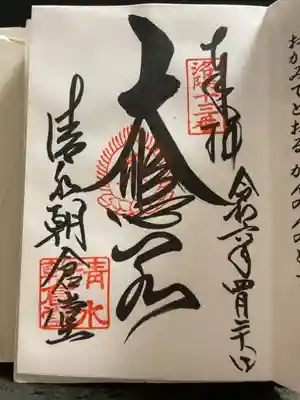 おがみてとおるかんのんのと
奉拝
洛陽十三番
令和六年四月二十日
大悲閣
清水朝倉堂
清水
朝倉堂